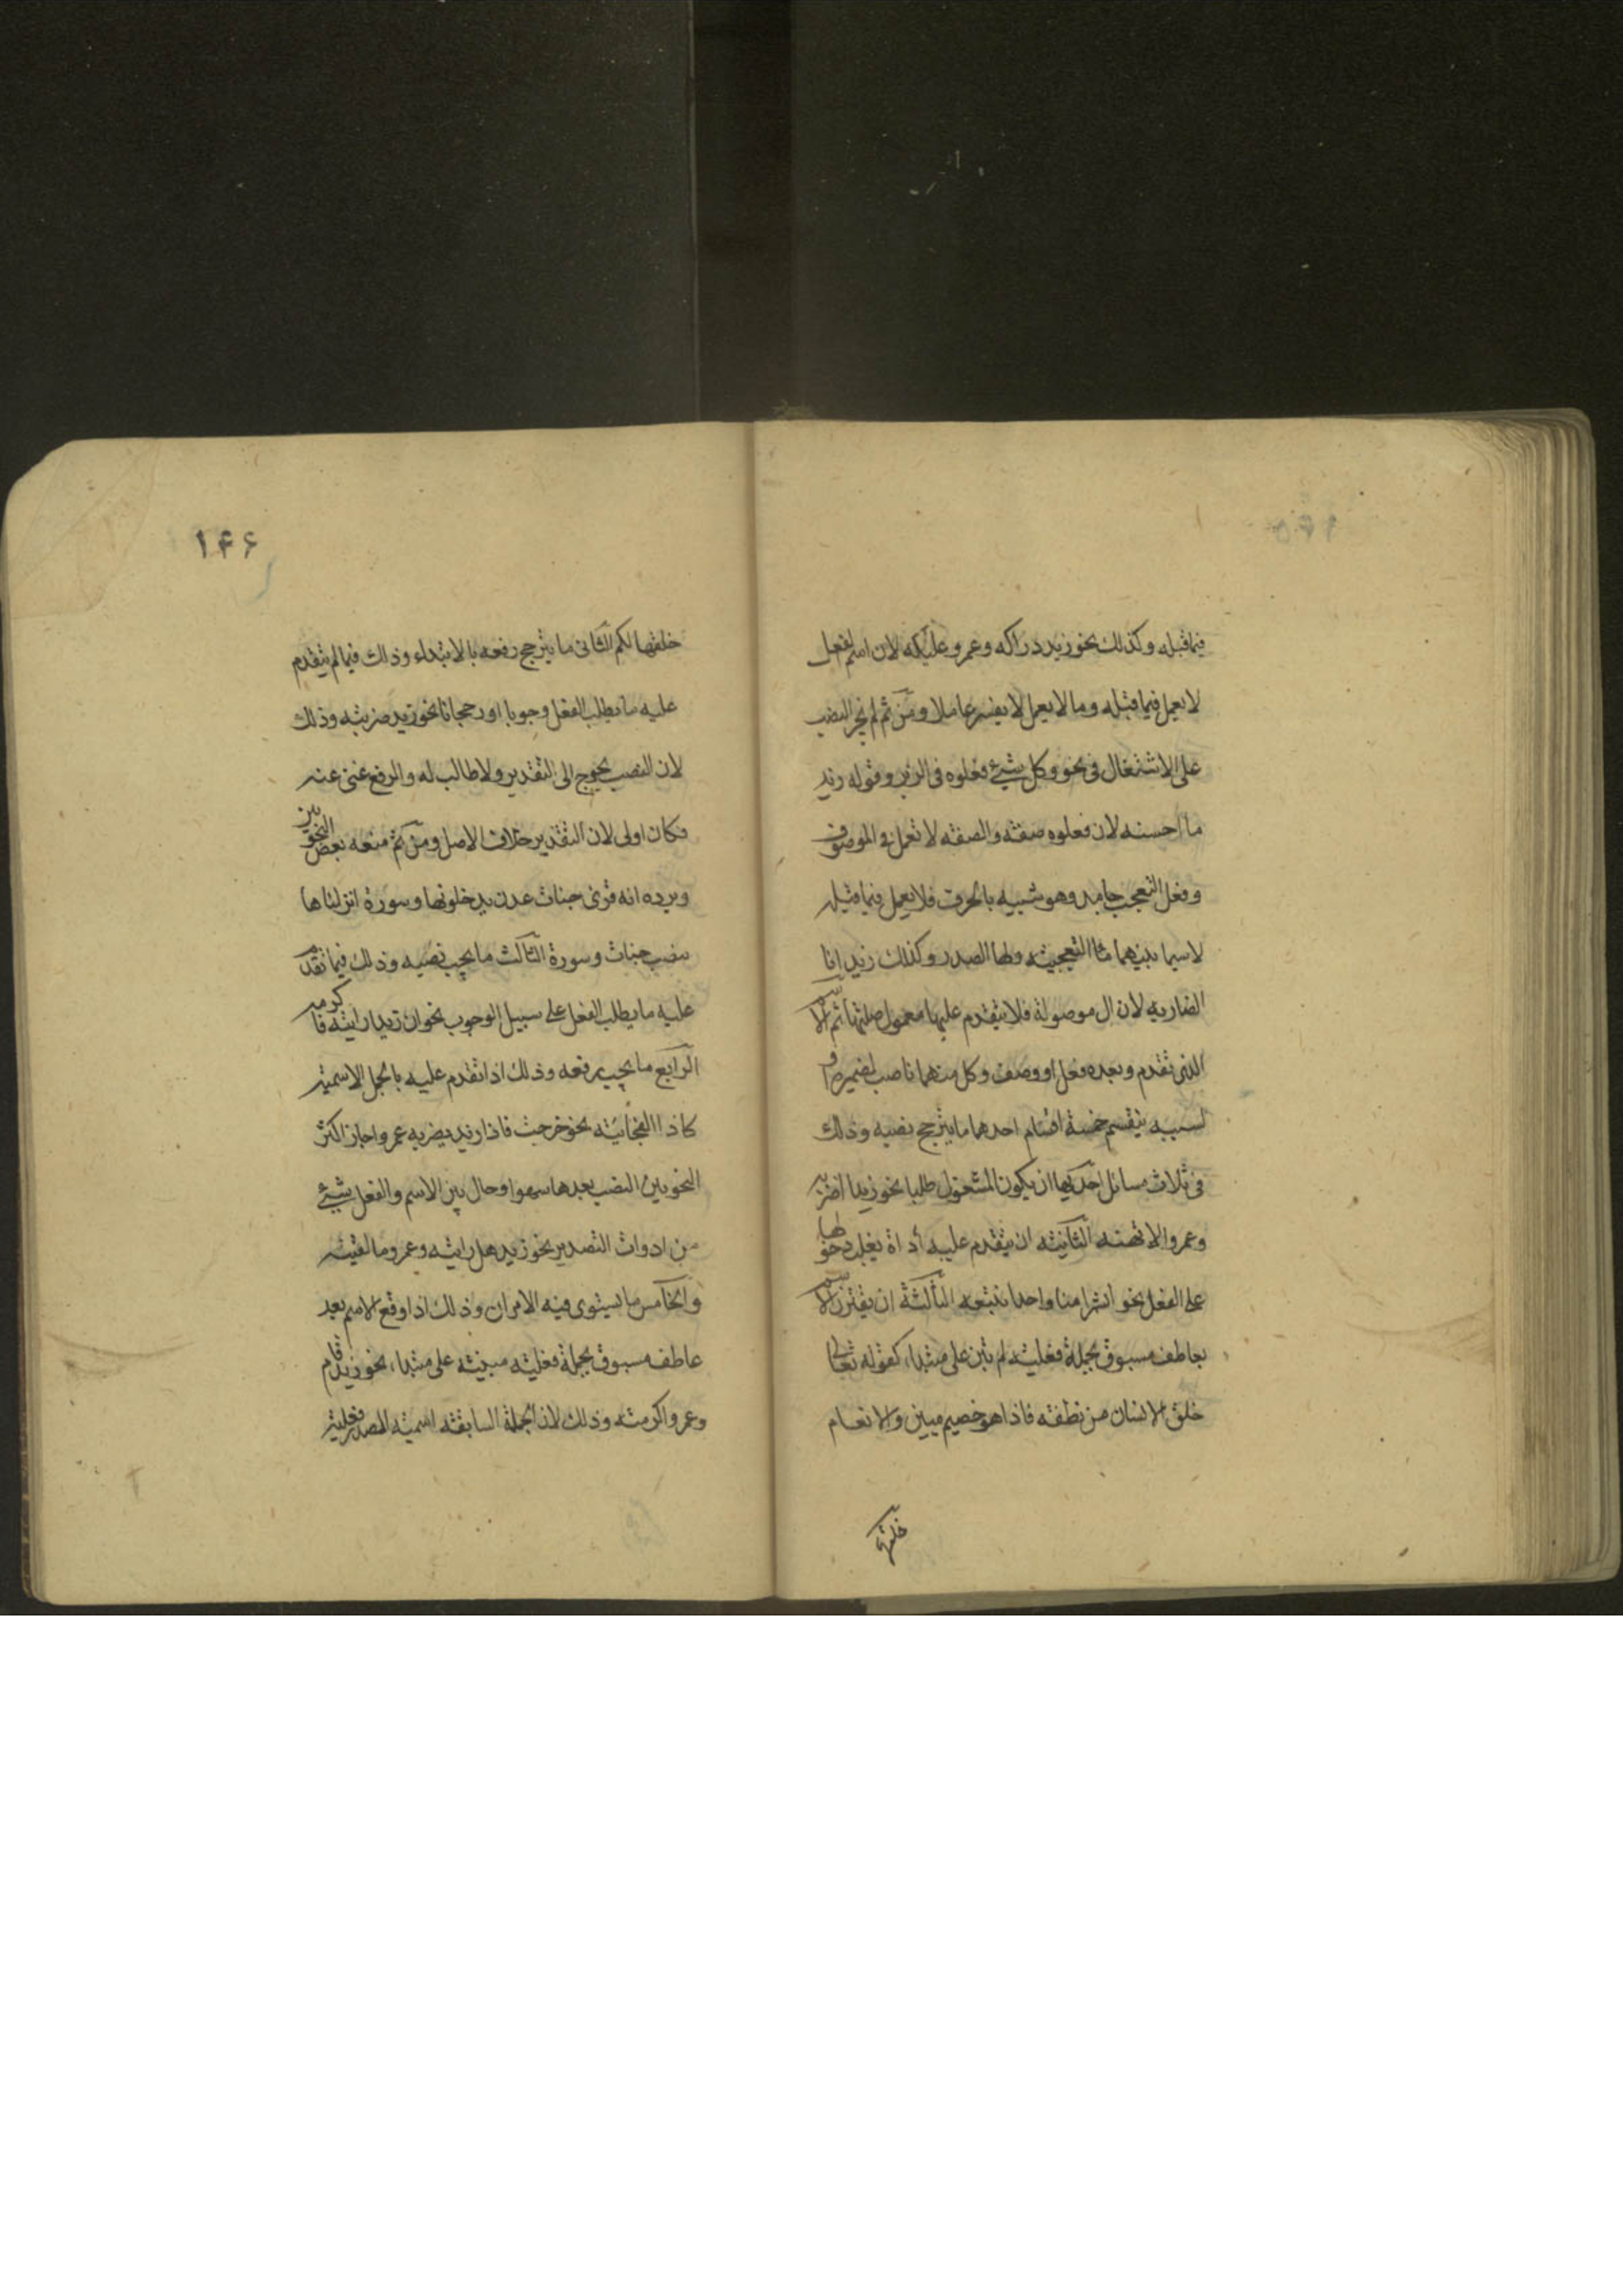 فيما قبله وكذلك نحو زيد دراكه وعمرو عليكه لان اسم الفعل
لا يعمل فيما قبله وما لا يعمل لا يفسر عاملا ومن ثم لم يجز النصب
على الاشتغال في نحو وكل شيء فعلوه في الزبر وقوله زيد
ما احسنه لان فعلوه صفة والصفة لا تعمل في الموصوف
وفعل التعجب جامد وهو شبيه بالحرف فلا يعمل فيما قبله
لاسيما بينهما ما التعجبية ولها الصدر وكذلك زيد انا
الضاربه لان ال موصولة فلا يتقدم عليها معمول صلتها ثم الاسم
الذي تقدم وبعده فعل او وصف وكل منهما ناصب لضميره او
لسببه ينقسم خمسة اقسام احدهما ما يترجح نصبه وذلك
في ثلاث مسائل احديها ان يكون المشغول طلبا نحو زيدا اضربه
وعمروا لا تهنه الثانية ان يتقدم عليه أداة يغلب دخولها
على الفعل نحو ابشرا منا واحدا نتبعه الثالثة ان يقترن الاسم
بعاطف مسبوق بجملة فعلية لم تبن على مبتداء كقوله تعالى
خلق الانسان من نطفة فاذا هو خصيم مبين والانعام
خلقها
۱۴۶
خلقها لكم الثانى ما يترجح رفعه بالابتداء وذلك فيما لم يتقدم
عليه ما يطلب الفعل وجوبا او رجحانا نحو زيد ضربته وذلك
لان النصب يحوج الى التقدير ولا طالب له والرفع غنى عنه
فكان اولى لان التقدير خلاف الاصل ومن ثم منعه بعض النحويين
ويرده انه قرى جنات عدن يدخلونها وسورة انزلناها
بنصب جنات وسورة الثالث ما يجب نصبه وذلك فيما تقدم
عليه ما يطلب الفعل على سبيل الوجوب نحو ان زيدا رايته فاكرمه
الرابع ما يجب رفعه وذلك اذا تقدم عليه بالجمل الاسمية
كاذا الفجائية نحو خرجت فاذا زيد يضربه عمرو اجاز اكثر
النحويين النصب بعدها سهوا وحال بين الاسم والفعل شيء
من ادوات التصدير نحو زيد هل رايته وعمرو ما لقيته
والخامس ما يستوى فيه الامران وذلك اذا وقع الاسم بعد
عاطف مسبوق بجملة فعلية مبنية على مبتداء نحو زيد قام
وعمروا كرمته وذلك لان الجملة السابقة اسمية الصدر فعلية